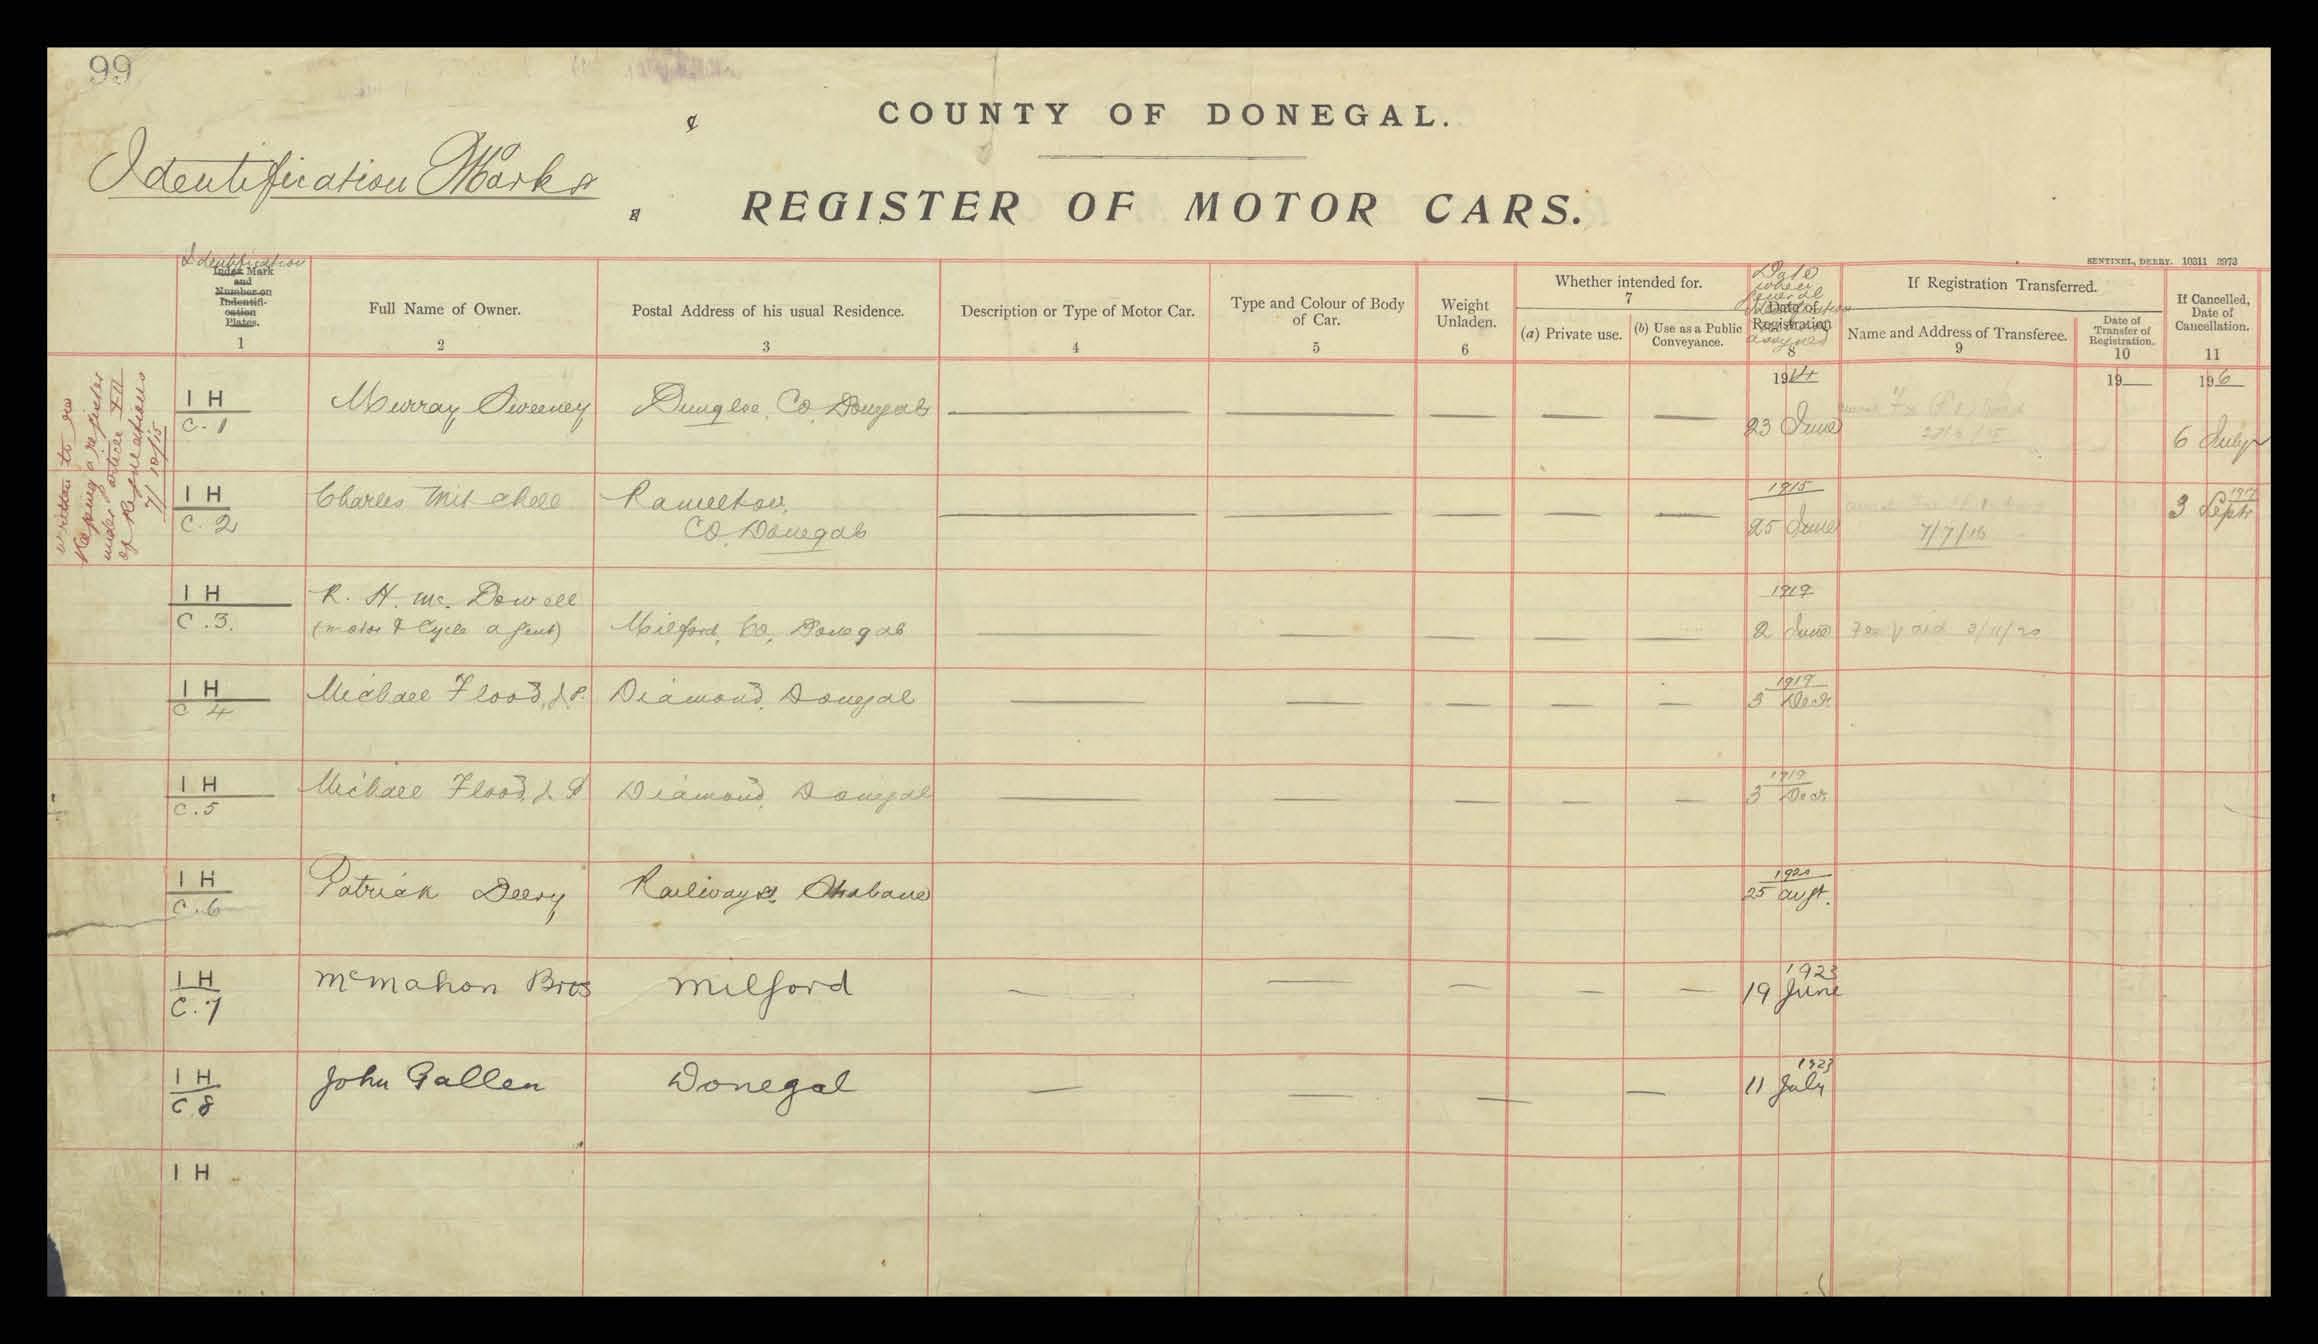 99
COUNTY OF DONEGAL.
Identification Marks
REGISTER OF MOTOR CARS.
SENTINEL, DERRY. 10311 2973
Identification
Index Mark
and
Number on
Indentifi-
cation
Plates.
1
Full Name of Owner.
2
Postal Address of his usual Residence.
3
Description or Type of Motor Car.
4
Type and Colour of Body
of Car.
5
Weight
Unladen.
6
Whether intended for.
7
(a) Private use.
(b) Use as a Public
Conveyance.
Date
when
General
Identification
assigned
Date of
Registration
8
If Registration Transferred.
Name and Address of Transferee.
9
Date of
Transfer of
Registration.
10
If Cancelled,
Date of
Cancellation.
11
written to re
Keeping a register
under article XII
of Regulations
7/10/15
1914
19
196
I H
C. 1
Murray Sweeney
Dungloe, Co. Donegal
23 June
6 July
I H
C. 2
Charles Mitchell
Ramelton,
Co. Donegal
1915
25 June
7/7/16
1917
3 Septr
I H
C. 3.
R. H. Mc. Dowell
(Motor & Cycle agent)
Milford, Co. Donegal
1919
2 June
Fee paid 3/11/20
I H
C 4
Michael Flood, J.P.
Diamond, Donegal
1919
3 Decr
I H
C. 5
Michael Flood, J.P.
Diamond, Donegal
1919
3 Decr
I H
C. 6
Patrick Deery
Railway St. Strabane
1920
25 augt.
I H
C. 7
McMahon Bros
Milford
1923
19 June
I H
C. 8
John Gallen
Donegal
1923
11 July
I H